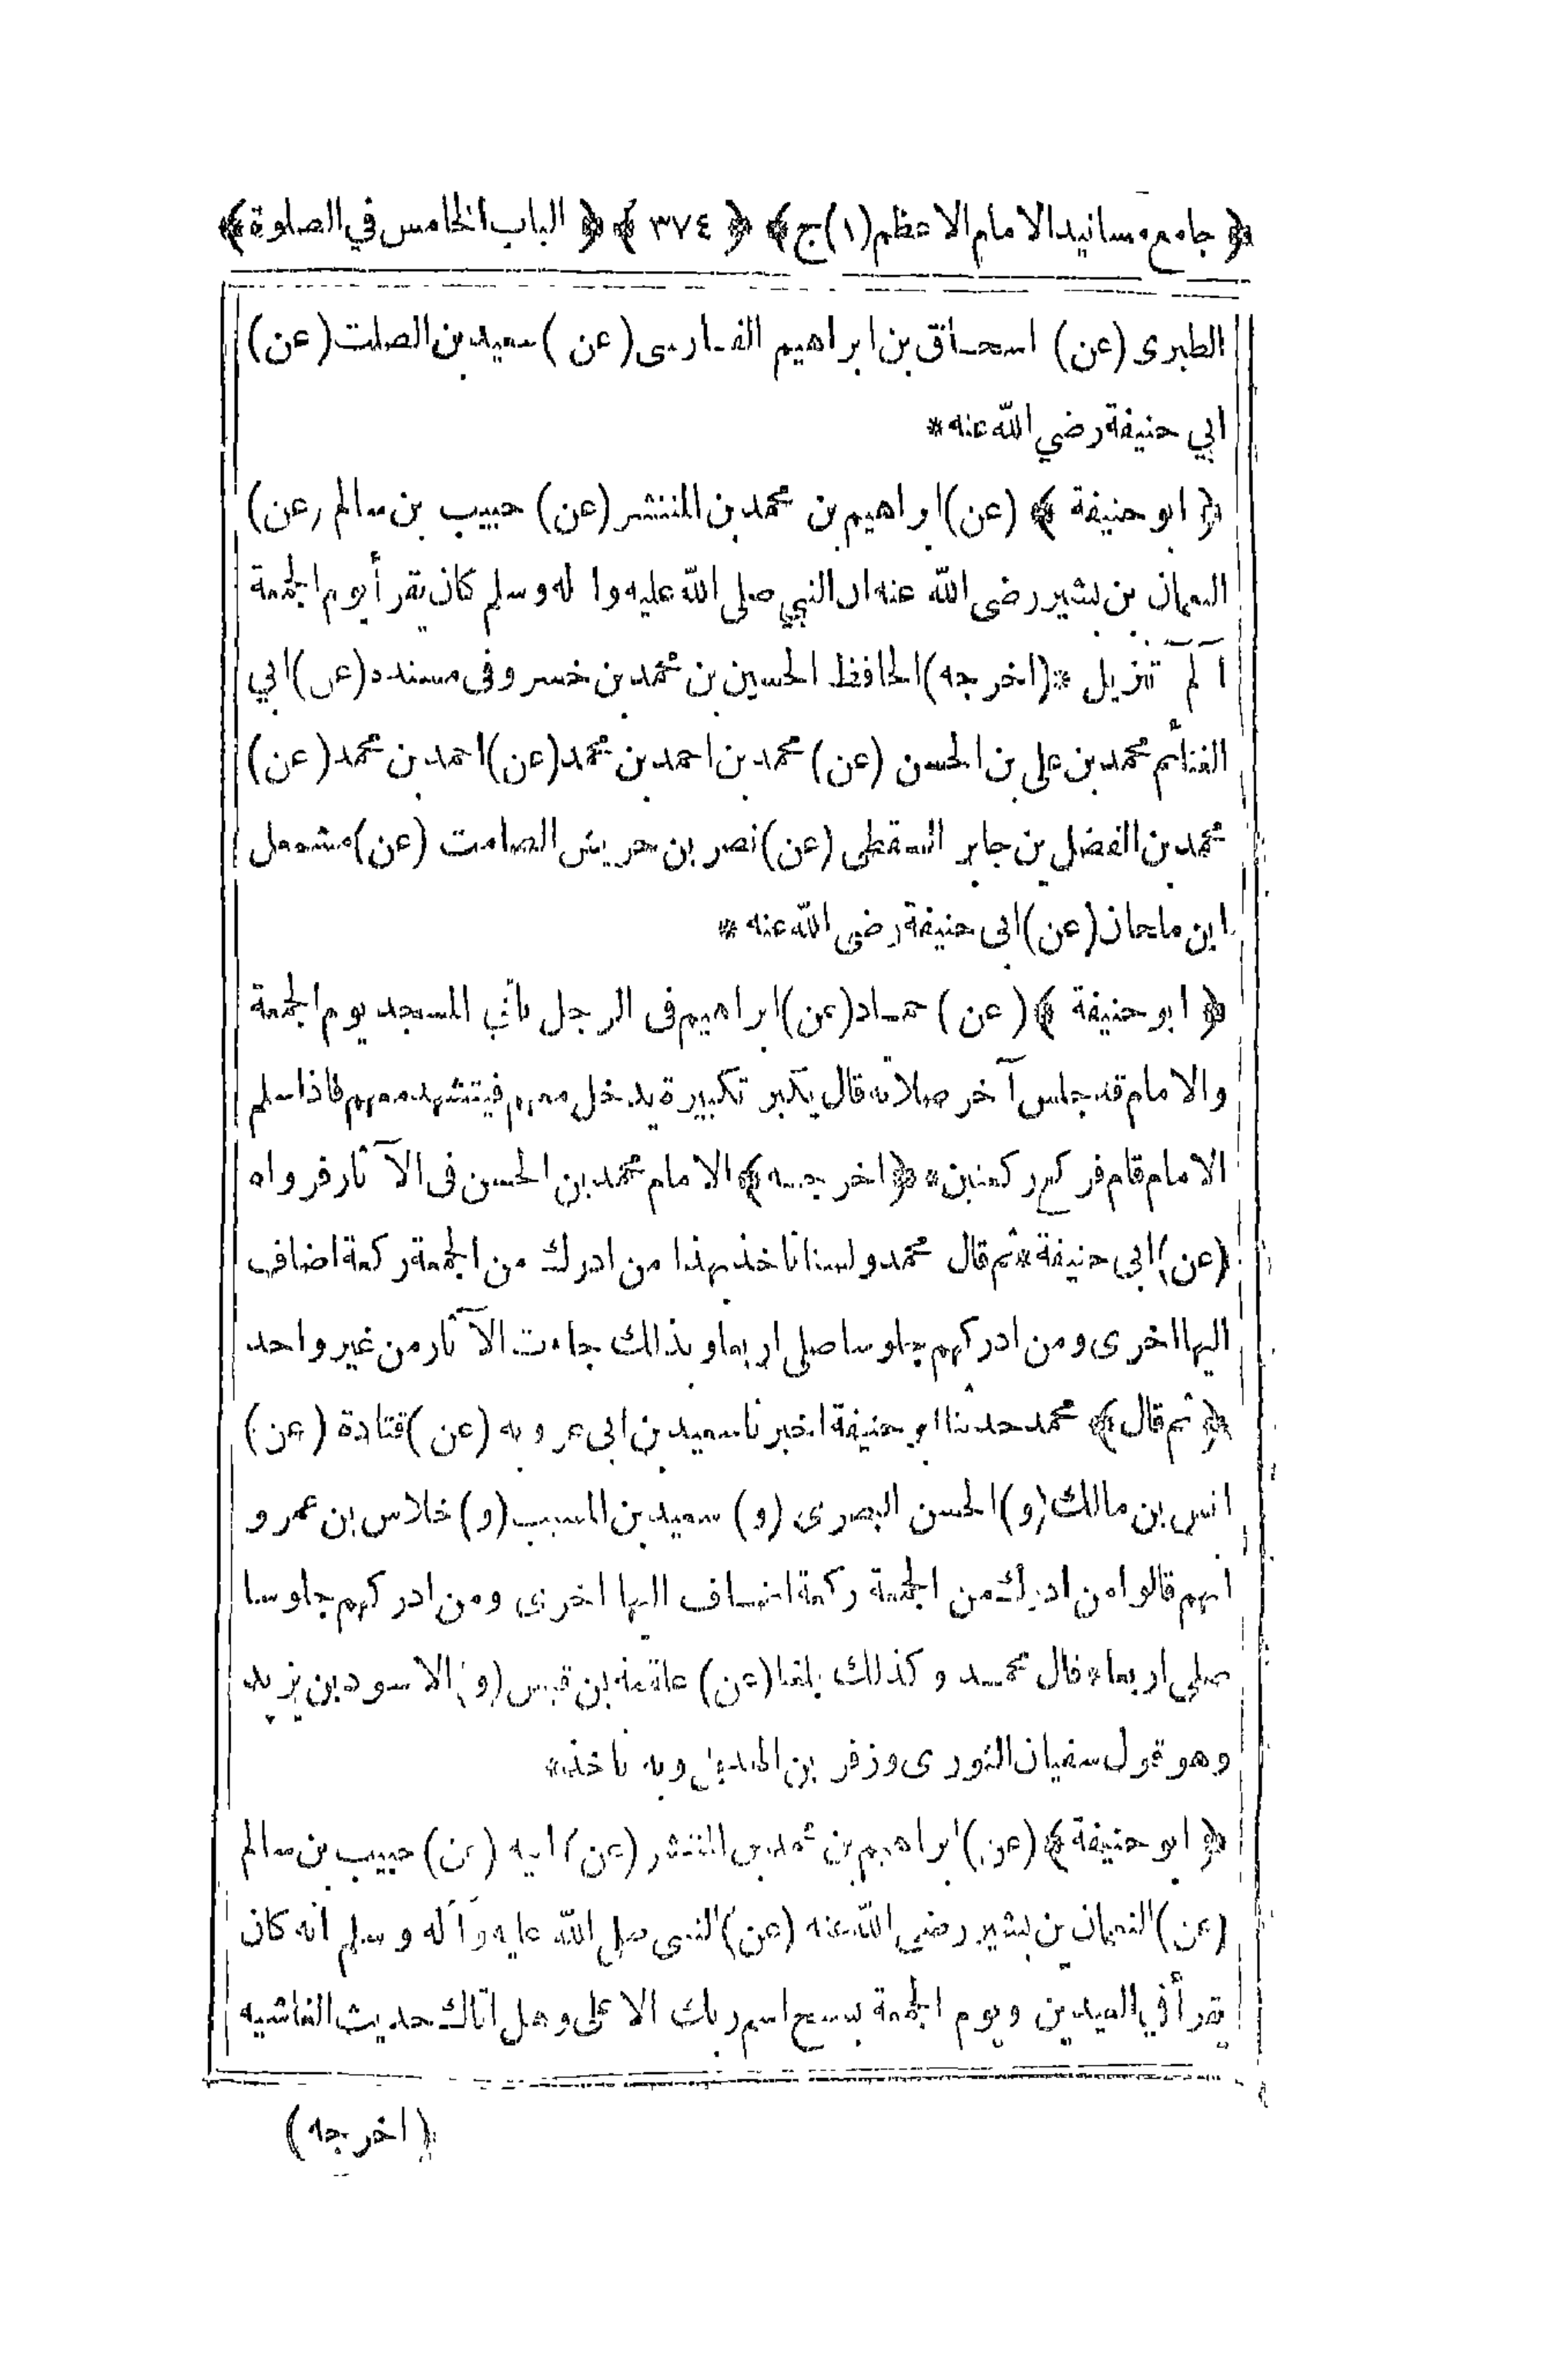 ﴿ جامع مسانيد الامام الاعظم (١) ج ﴾ ﴿ ٣٧٤ ﴾ ﴿ الباب الخامس في الصلوة ﴾
الطبرى (عن) اسحاق بن ابراهيم الفارسى (عن) سعيد بن الصلت (عن)
ابي حنيفة رضي الله عنه *
﴿ ابو حنيفة ﴾ (عن) ابراهيم بن محمد بن المنتشر (عن) حبيب بن سالم (عن)
النعمان بن بشير رضى الله عنه ان النبي صلى الله عليه وا له وسلم كان يقرأ يوم الجمعة
آلم تنزيل * (اخرجه) الحافظ الحسين بن محمد بن خسرو فى مسنده (عن) ابي
الغنائم محمد بن على بن الحسن (عن) محمد بن احمد بن محمد (عن) احمد بن محمد (عن)
محمد بن الفضل بن جابر السقطى (عن) نصر بن حريش الصامت (عن) مشمعل
ابن ملحان (عن) ابى حنيفة رضى الله عنه *
﴿ ابو حنيفة ﴾ (عن) حماد (عن) ابراهيم فى الرجل يأتي المسجد يوم الجمعة
والامام قد جلس آخر صلاته قال يكبر تكبيرة يدخل معهم فيتشهد معهم فاذا سلم
الامام قام فركع ركعتين * ﴿ اخرجه ﴾ الامام محمد بن الحسن فى الآثار فرواه
(عن) ابى حنيفة * ثم قال محمد ولسنا ناخذ بهذا من ادرك من الجمعة ركعة اضاف
اليها اخرى ومن ادركهم جلوسا صلى اربعا وبذالك جاءت الآثار من غير واحد
﴿ ثم قال ﴾ محمد حدثنا ابو حنيفة اخبرنا سعيد بن ابى عروبه (عن) قتادة (عن)
انس بن مالك (و) الحسن البصرى (و) سعيد بن المسيب (و) خلاس بن عمرو
انهم قالوا من ادرك من الجمعة ركعة اضاف اليها اخرى ومن ادركهم جلوسا
صلى اربعا * قال محمد وكذلك بلغنا (عن) علقمة بن قيس (و) الاسود بن يزيد
وهو قول سفيان الثورى وزفر بن الهذيل وبه ناخذ *
﴿ ابو حنيفة ﴾ (عن) ابراهيم بن محمد بن المنتشر (عن) ابيه (عن) حبيب بن سالم
(عن) النعمان بن بشير رضى الله عنه (عن) النبى صلى الله عليه وآله وسلم انه كان
يقرأ في العيدين ويوم الجمعة بسبح اسم ربك الاعلى وهل اتاك حديث الغاشيه
(اخرجه)